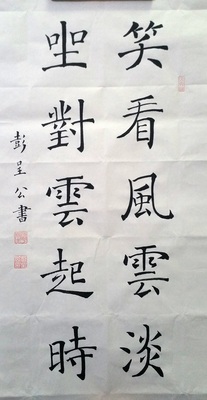 笑看風雲淡
坐對雲起時
彭呈公書